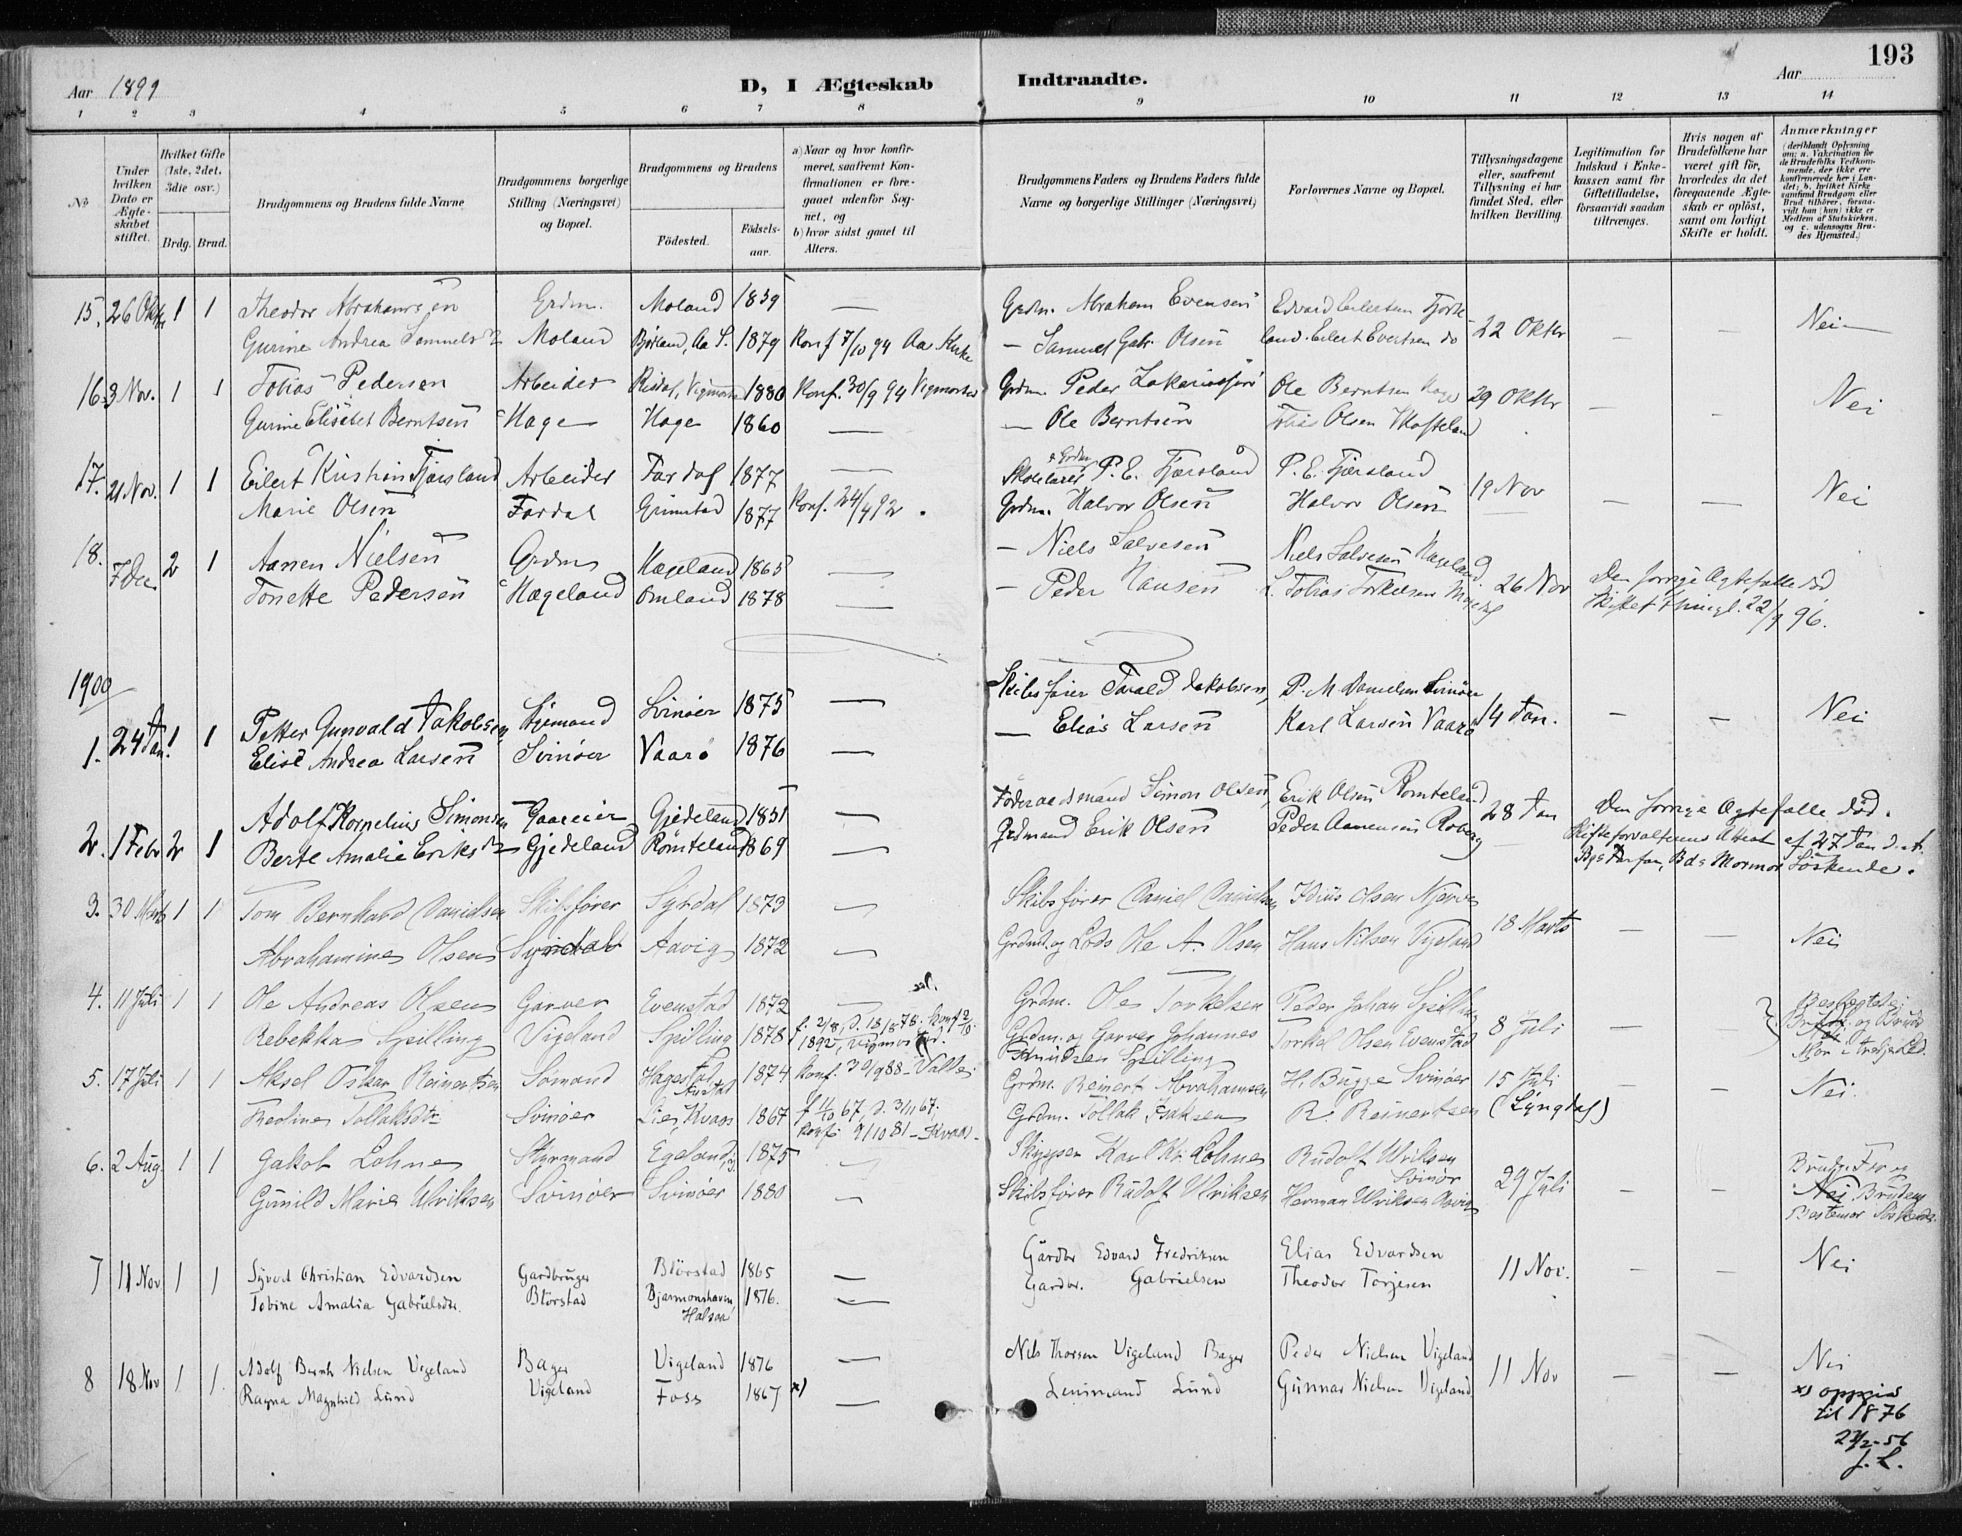 193
Aar 1899
D, I Ægteskab Indtraadte.
Aar
1 2 3 4 5 6 7 8 9 10 11 12 13 14
No
Under hvilken Dato er Ægteskabet stiftet.
Hvilket Gifte (1ste, 2det, 3die osv.)
Brdg. Brud.
Brudgommens og Brudens fulde Navne
Brudgommens borgerlige Stilling (Næringsvei) og Bopæl.
Brudgommens og Brudens
Födested. Födsels-aar.
a) Naar og hvor konfirmeret, saafremt Konfirmationen er foregaaet udenfor Sognet, og
b) hvor sidst gaaet til Alters.
Brudgommens Faders og Brudens Faders fulde Navne og borgerlige Stillinger (Næringsvei)
Forlovernes Navne og Bopæl.
Tillysningsdagene eller, saafremt Tillysning ei har fundet Sted, efter hvilken Bevilling.
Legitimation for Indskud i Enkekassen samt for Giftetilladelse, forsaavidt saadan tiltrænges.
Hvis nogen af Brudefolkene har været gift før, hvorledes da det foregaaende Ægteskab er oplöst, samt om lovligt Skifte er holdt.
Anmærkninger (deriblandt Oplysning om: a. Vakcination for de Brudefolks Vedkommende, der ikke ere konfirmerede her i Landet; b. hvilket Kirkesamfund Brudgom eller Brud tilhörer, forsaavidt han (hun) ikke er Medlem af Statskirken, og c. udensogns Brudes Hjemsted.)
15. 26 Oktbr 1 1 Theodor Abrahamsen Grdm. Moland 1859 — Grdm. Abraham Evensen Edvard Eilertsen Fjeld-
Gurine Andrea Samuelsd. Moland Bjørland, Aa S. 1879 Konf 7/10 94 Aa Kirke — Samuel Gabr. Olsen land. Eilert Evertsen do 22 Oktbr — — Nei
16. 3 Nov. 1 1 Tobias Pedersen Arbeider Risdal, Vigmostad 1880 Konf. 30/9 94 Vigmostad Grdm. Peder Zakariassen Ole Berntsen Hage 29 Oktbr — — Nei
Gurine Elisabet Berntsen Hage Hage 1860 — — Ole Berntsen Tobias Olsen
17. 21 Nov. 1 1 Eilert Kristian Fjærsland Arbeider Fardal 1877 — Skolelærer & Grdm P. E. Fjærsland P. E. Fjærsland 19 Nov — — Nei
Marie Olsen Fardal Grimstad 1877 Konf. 24/4 92. Grdm. Halvor Olsen Halvor Olsen
18. 7 Dec 2 1 Aanen Nielsen Grdm Hageland 1865 — — Niels Salvesen Niels Salvesen Hageland 26 Nov Den forrige Ægtefælle död
Tonette Pedersen Hægeland Omland 1878 — — Peder Hansen L. Tobias Torkelsen Skiftet thingl. 22/9 96.
1900
1. 24 Jan. 1 1 Petter Gunvald Jakobsen Styrmand Svinøer 1875 — Skibsfører Tarald Jakobsen, P. M. Danielsen Svinøer 14 Jan. — — Nei
Elise Andrea Larsen Svinøer Vaarø 1876 — — Elias Larsen Karl Larsen Vaarø
2. 1 Febr 2 1 Adolf Kornelius Simonsen Gaareier Gjedeland 1851 — Føderaadsmand Simon Olsen, Erik Olsen Romteland 28 Jan Den forrige Ægtefælle död.
Berte Amalie Eriksd. Gjedeland Römteland 1869 — Grdmand Erik Olsen Peder Aanensen Roberg Skifteforvalterens Attest af 27 Jan d. A.
Bgs Farfar, Bds Mormor Söskende.
3. 30 Marts 1 1 Tom Bernhard Danielsen Skibsfører Syrdal 1873 — Skibsfører Daniel Danielsen Olsen Njerve 18 Marts — — Nei
Abrahamine Olsen Syrdal Aavig 1872 — Grdmd. og Lods Ole A. Olsen Hans Nilsen Vigeland
4. 11 Juli 1 1 Ole Andreas Olsen Garver Evenstad 1872 — Grdm. Ole Torkelsen Peder Johan Spilling 8 Juli — Beslægtede:
Rebekka Spilling Vigeland Spilling 1878 f. 2/8, d. 18/8 78. Konf 2/10. 1892, Vigmostad. Grdm. og Garver Johannes Knudsen Spilling Torkel Olsen Evenstad Brudg. og Brud Nei Mor i tredje Led.
5. 17 Juli 1 1 Aksel Oskar Reinertsen Sömand Hagestad 1874 Konf. 30/9 88 – Valle. Grdm. Reinert Abrahamsen H. Bugge Svinøer 15 Juli — — Nei.
Teoline Tollaksdtr Svinøer Lie, Kvaas 1867 f. 11/10 67, d. 3/11 67. Konf. 9/10 81 – Kvaas. Grdm. Tollak Isaksen R. Reinertsen (Lyngdal)
6. 2 Aug. 1 1 Jakob Lohne Styrmand Egeland, 1875 — Skipper Karl Kr. Lohne Rudolf Ulriksen Svinör 29 Juli — — Brudg. Far og
Gunild Marie Ulriksen Svinøer Svinøer 1880 — Skibsfører Rudolf Ulriksen Herman Ulriksen Aavig Nei. Brudens Bestemor Söskende.
7 11 Nov 1 1 Syvert Christian Edvardsen Gardbruger Blörstad 1865 — Gårdbr Edvard Fredriksen Elias Edvardsen 11 Nov. — — Nei
Tobine Amalia Gabrielsdtr. Blörstad Bjarmonshavn, Halsaa 1876. — Gardbr. Gabrielsen Theodor Torjesen
8 18 Nov 1 1. Adolf Bernh Nielsen Vigeland Bager Vigeland 1876 — Nils Thorsen Vigeland Bager Peder Nielsen Vigeland 11 Nov — — Nei
Ragna Magnhild Lund Vigeland Foss 1867 x) — Lensmand Lund Gunnar Nielsen Vigeland
x) oppgis
til 1876
2/2-56
J. L.